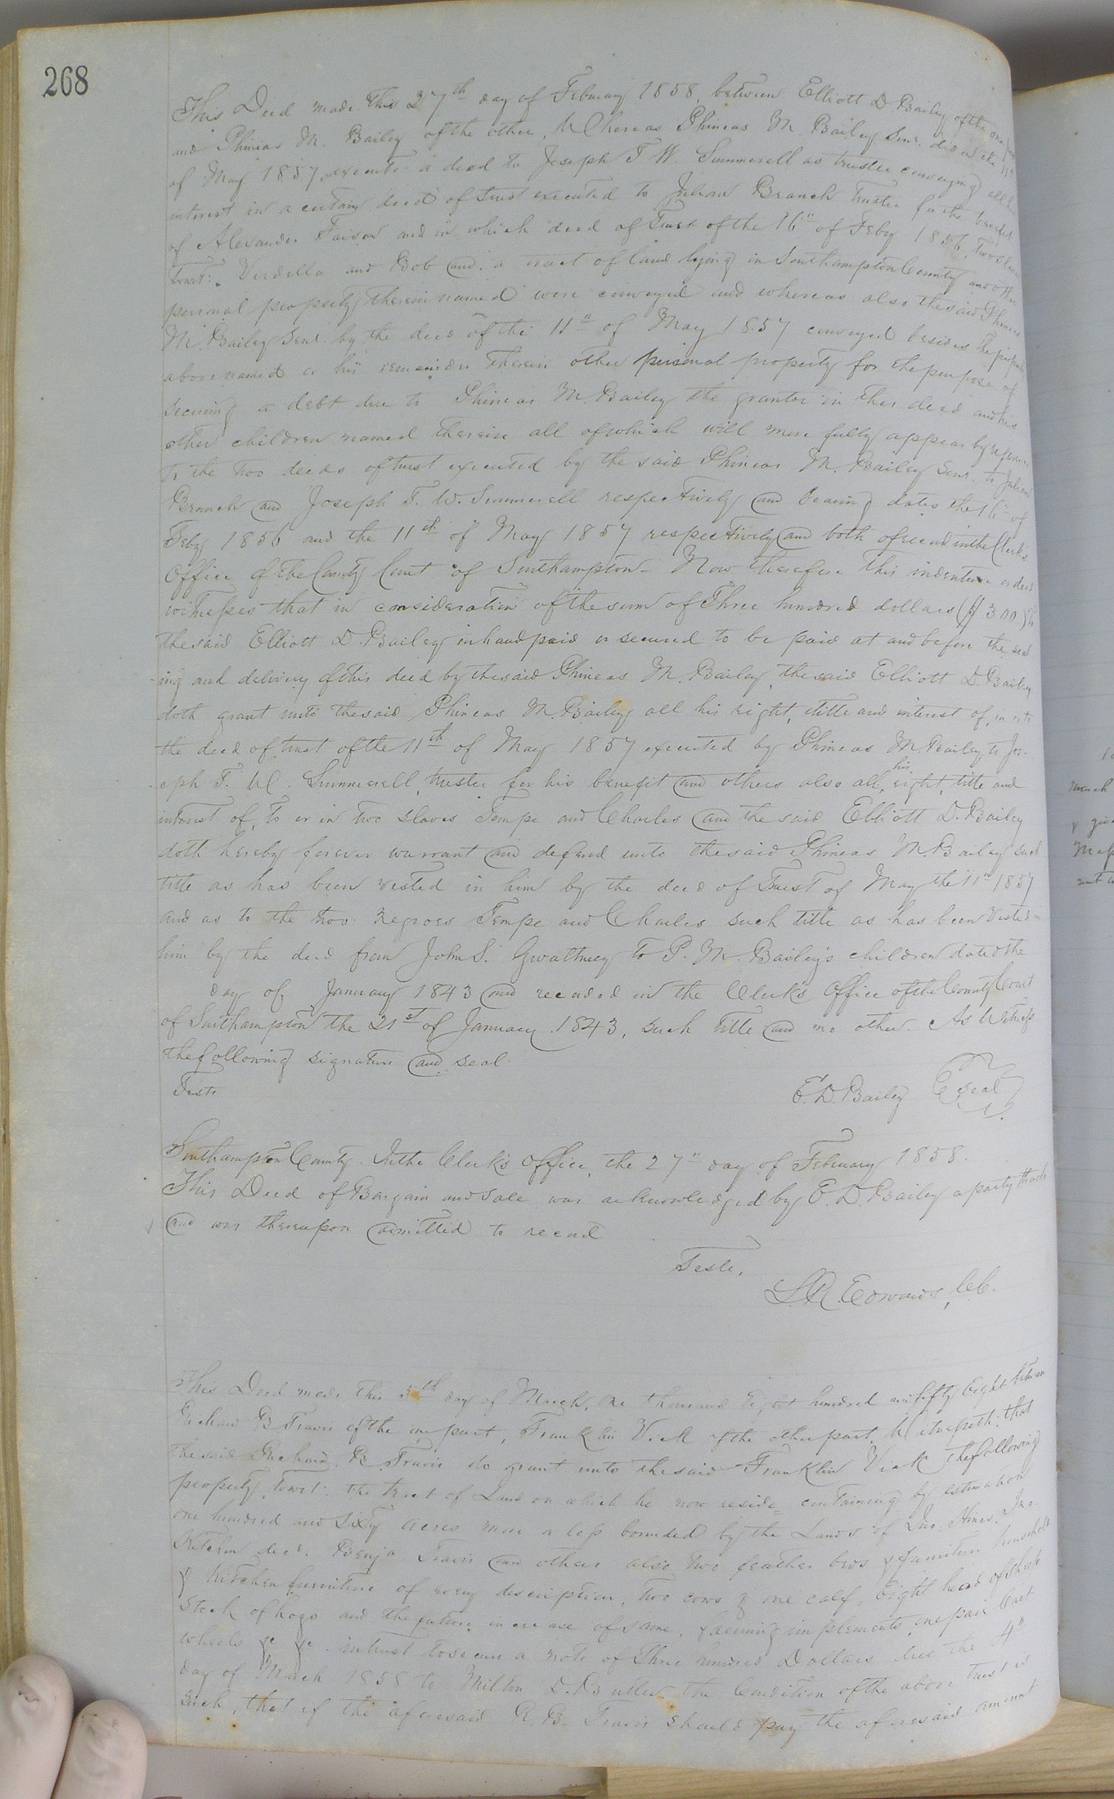 268
This Deed made this 27th day of February 1858, between Elliott D Bailey of the one part
and Phineas M. Bailey of the other, Whereas Phineas M Bailey Senr. did on the 11th
of May 1857, execute a deed to Joseph T. W. Summerell as trustee conveying all his
interest in a certain deed of trust executed to Julian Branch Trustee for the benefit
of Alexander Faison and in which deed of Trust of the 16th of Feby 1856, Two slaves
towit: Verdella and Bob and a tract of land lying in Southampton County and other
personal property therein named were conveyed and whereas also the said Phineas
M. Bailey Senr. by the deed of the 11th of May 1857 conveyed besides the property
above named or his remainder therein other personal property for the purpose of
securing a debt due to Phineas M. Bailey the grantor in this deed and his
other children named therein all of which will more fully appear by reference
to the two deeds of trust executed by the said Phineas M. Bailey Senr. to Julian
Branch and Joseph T. W. Summerell respectively and bearing dates the 16th of
Feby 1856 and the 11th of May 1857 respectively and both of record in the Clerks
Office of the County Court of Southampton- Now therefore this indenture or deed
witnesses that in consideration of the sum of Three hundred dollars ($300)
the said Elliott D. Bailey in hand paid or secured to be paid at and before the seal
ing and delivery of this deed by the said Phineas M. Bailey, the said Elliott D Bailey
doth grant unto the said Phineas M. Bailey all his right, title and interest of, in or to
the deed of trust of the 11th of May 1857 executed by Phineas M. Bailey to Jos-
eph T. W. Summerell, trustee for his benefit and others also all his right, title and
interest of, to or in two slaves Tempe and Charles and the said Elliott D. Bailey
doth hereby forever warrant and defend unto the said Phineas M. Bailey such
title as has been vested in him by the deed of Trust of May the 11th 1857
and as to the two negroes Tempe and Charles such title as has been vested in
him by the deed from John S. Gwathmey to P. M. Bailey's children dated the
day of January 1843 and recorded in the Clerk's Office of the County Court
of Southampton the 21st of January 1843, such title and no other. As Witness
the following signature and seal
Teste
E. D. Bailey Seal
Southampton County. In the Clerk's Office, the 27th day of February 1858.
This Deed of Bargain and Sale was acknowledged by E. D. Bailey a party thereto
and was thereupon admitted to record
Teste,
L. R. Edwards, C.C.
This Deed made this 5th day of March, one thousand Eight hundred and fifty Eight between
Richard B Travis of the one part, Franklin Vick of the other part, Witnesseth: that
the said Richard B. Travis do grant unto the said Franklin Vick the following
property, towit: the tract of Land on which he now reside containing by estimation
one hundred and sixty acres more or less bounded by the Lands of Jno. Hines, Jno.
Kitchin decd. Benja Travis and others also two feather beds & furniture household
& Kitchen furniture of every discription, two cows & one calf, Eight head of sheep
stock of hogs and the future increase of same, farming implements, one pair Cart
wheels &c &c in trust to secure a note of Three hundred Dollars due the 4th
day of March 1858 to Milton D. Butler, the Condition of the above trust is
such, that if the aforesaid R. B. Travis should pay the aforesaid amount